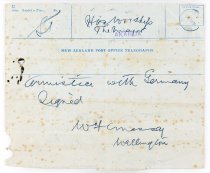 His Worship
The Mayor
NEW ZEALAND POST OFFICE TELEGRAPHS.
Armistice with Germany
Signed
W F Massey
Wellington